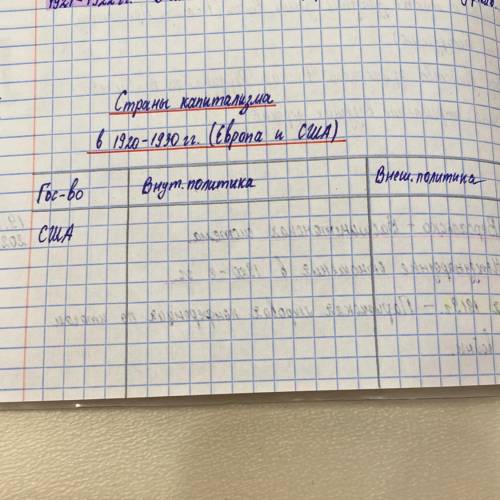 1921-1922 гг.
Страны капитализма
в 1920-1930 гг. (Европа и США)
Гос-во Внут. политика Внеш. политика
США